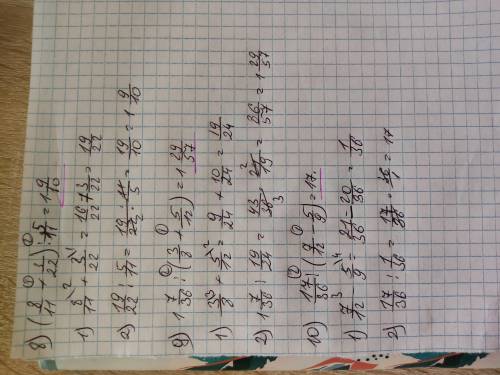 8) (8/11 + 3/22) : 5/11 = 1 9/10
1) 8/11 + 3/22 = 16+3/22 = 19/22
2) 19/22 : 5/11 = 19/22 · 11/5 = 19/10 = 1 9/10
9) 1 7/36 : (3/8 + 5/12) = 1 29/57
1) 3/8 + 5/12 = 9/24 + 10/24 = 19/24
2) 1 7/36 : 19/24 = 43/36 · 24/19 = 86/57 = 1 29/57
10) 17/36 : (7/12 - 5/9) = 17.
1) 7/12 - 5/9 = 21-20/36 = 1/36
2) 17/36 : 1/36 = 17/36 · 36/1 = 17